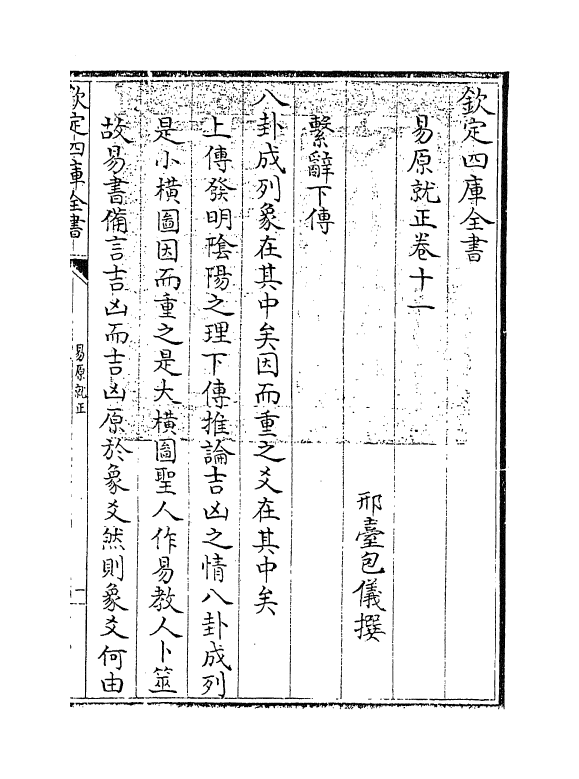 欽定四庫全書
易原就正卷十一
邢臺包儀撰
繫辭下傳
八卦成列象在其中矣因而重之爻在其中矣
上傳發明陰陽之理下傳推論吉凶之情八卦成列
是小橫圖因而重之是大橫圖聖人作易教人卜筮
故易書備言吉凶而吉凶原於象爻然則象爻何由
欽定四庫全書
易原就正
一